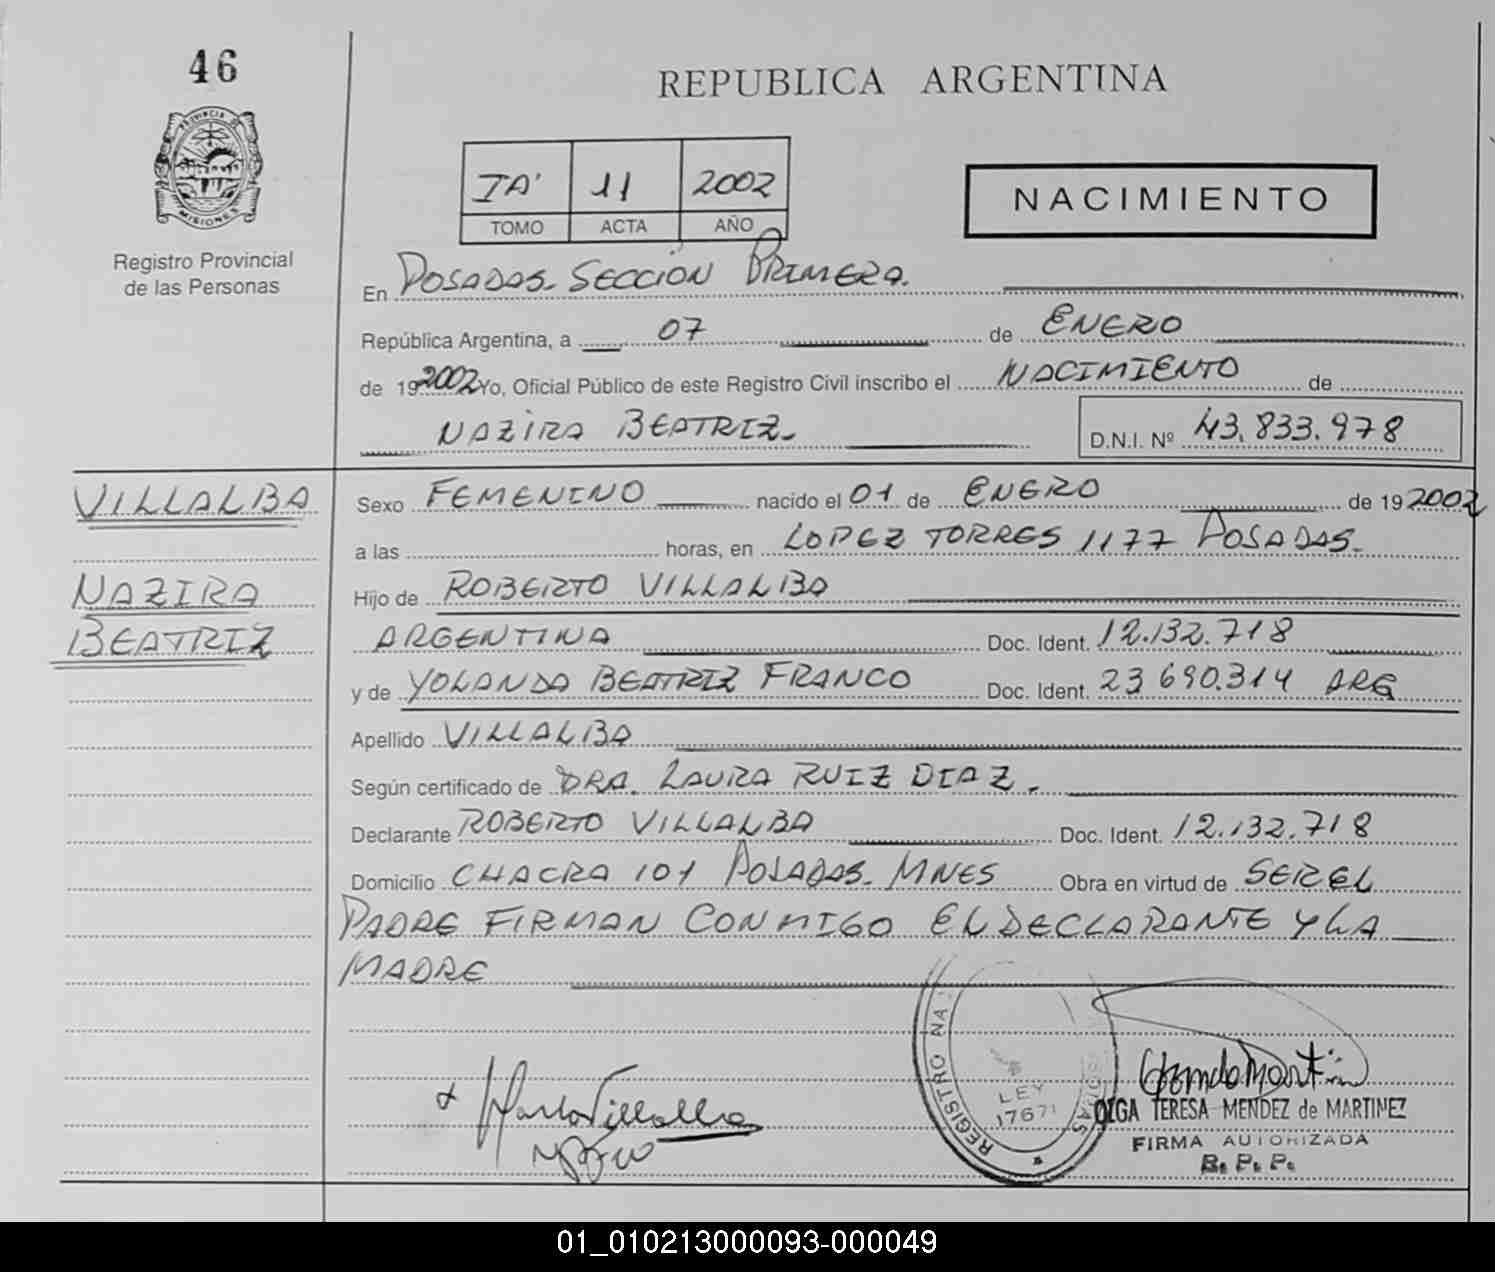 46
REPUBLICA ARGENTINA
PROVINCIA DE
MISIONES
Registro Provincial
de las Personas
IA' 11 2002
TOMO ACTA AÑO
NACIMIENTO
En POSADAS. SECCIÓN PRIMERA.
República Argentina, a 07 de ENERO
de 19 2002 Yo, Oficial Público de este Registro Civil inscribo el NACIMIENTO de
NAZIRA BEATRIZ D.N.I. Nº 43.833.978
VILLALBA
NAZIRA
BEATRIZ
Sexo FEMENINO nacido el 01 de ENERO de 19 2002
a las horas, en LOPEZ TORRES 1177 POSADAS.
Hijo de ROBERTO VILLALBA
ARGENTINA Doc. Ident. 12.132.718
y de YOLANDA BEATRIZ FRANCO Doc. Ident. 23 690.314 ARG
Apellido VILLALBA
Según certificado de DRA. LAURA RUIZ DIAZ.
Declarante ROBERTO VILLALBA Doc. Ident. 12.132.718
Domicilio CHACRA 101 POSADAS. MNES Obra en virtud de SER EL
PADRE FIRMAN CONMIGO EL DECLARANTE Y LA
MADRE
REGISTRO NA
LEY
17671
OLGA TERESA MENDEZ de MARTINEZ
FIRMA AUTORIZADA
R. P. P.
01_010213000093-000049